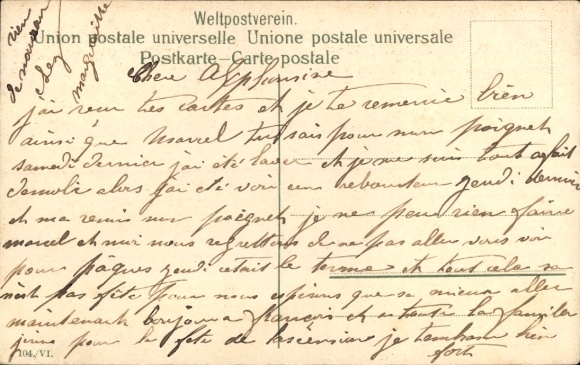 Weltpostverein.
Union postale universelle Unione postale universale
Postkarte – Carte postale
rien
de nouveau
chez
marguerite
Chere Alphonsine
j'ai reçu tes cartes et je te remercie bien
ainsi que Marcel tu sais pour mon poignet
samedi dernier j'ai été laver et je me suis tout afait
demoli alors j'ai été voir un rebouteur jeudi dernier
et ma remis mon poignet je ne peu rien faire
marcel et moi nous regrettons de ne pas aller vous voir
pour pâques jeudi cétait le terme et tout cela sa
nest pas fête pour nous esperons que sa mieux aller
maintenant bonjour a françois et a toute la famille
pour la fête de lascension je tembrasse bien
fort
104./VI.